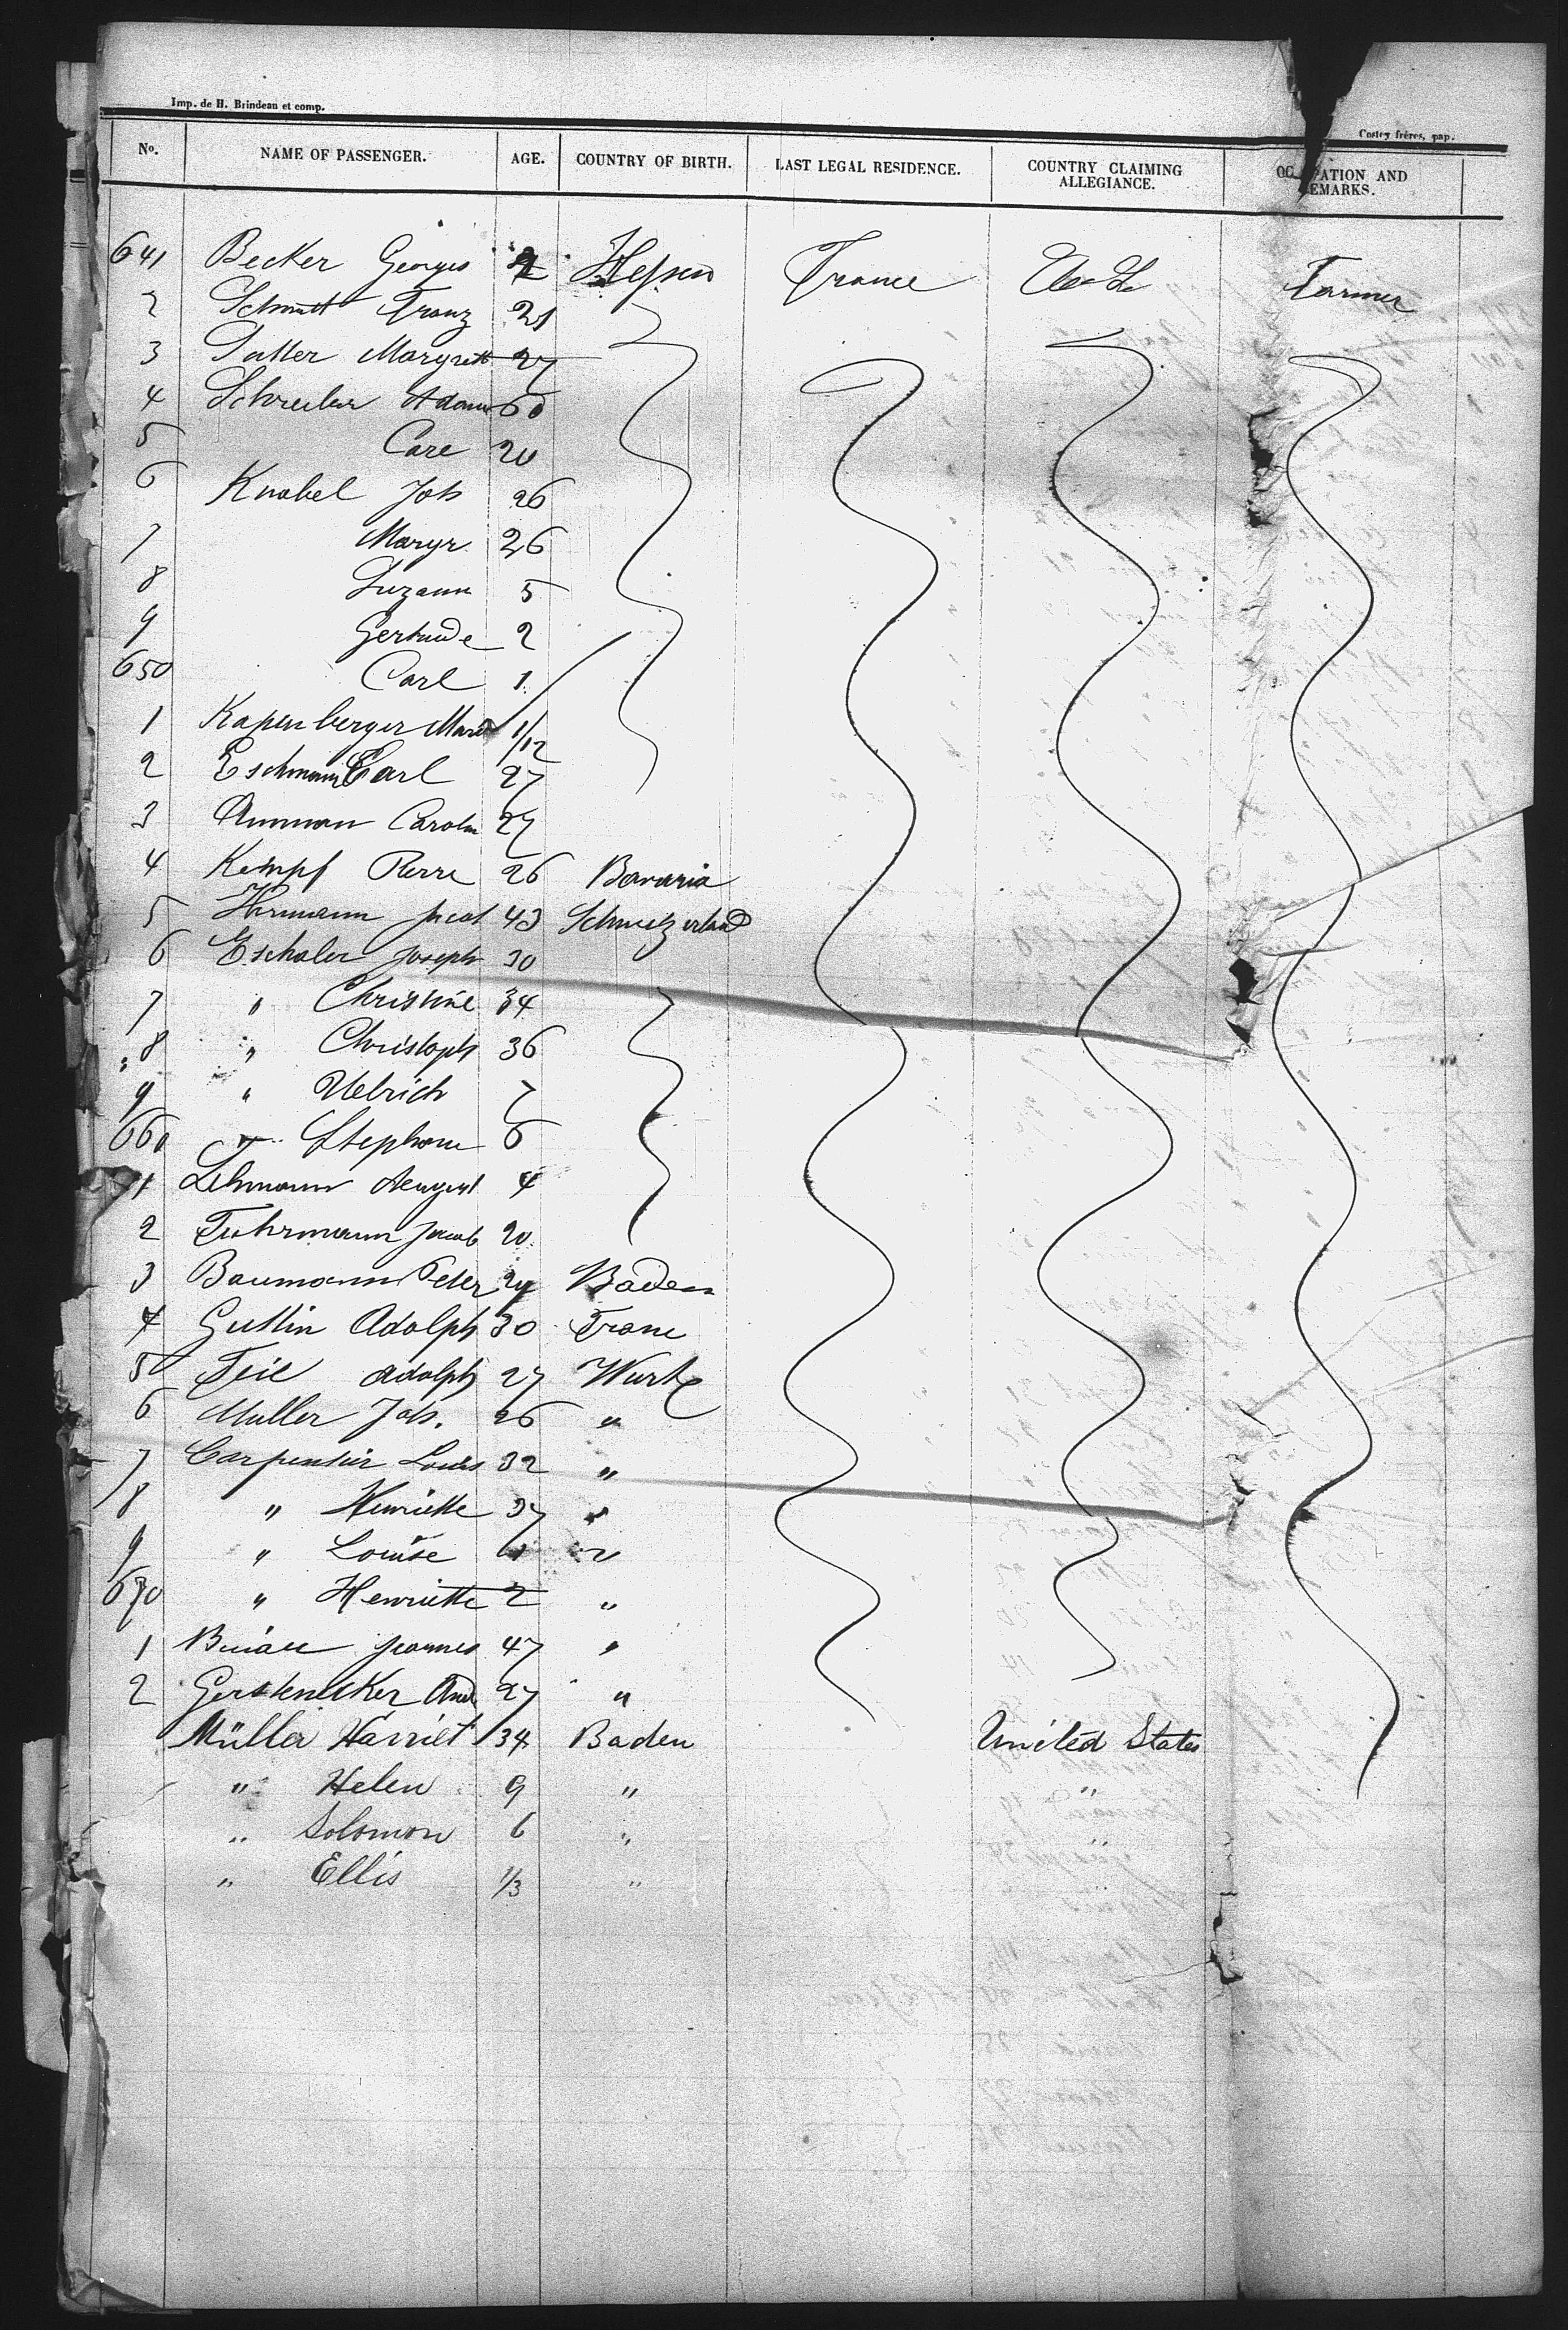 Imp. de H. Brindeau et comp.
Costey frères, pap.
No. NAME OF PASSENGER. AGE. COUNTRY OF BIRTH. LAST LEGAL RESIDENCE. COUNTRY CLAIMING ALLEGIANCE. OC PATION AND EMARKS.
641 Becker Georges Hessen France Farmer
2 Schmitt Franz 21
3 Margrett 27
4 Schreiber Adam 60
5 Care 20
6 Knabel Joh 26
7 Margr 26
8 Suzann 5
9 Gertrude 2
650 Carl 1
1 Kapenberger Marie 1/12
2 Eschmann Carl 27
3 Amman Carolin 27
4 Kempf Pierre 26 Bavaria
5 Hermann Jacob 43 Schweizerland
6 Eschaler Joseph 30
7 " Christine 34
8 " Christoph 36
9 " Uelrich 7
660 " Stephane 6
1 Lehmann August 4
2 Fuhrmann Jacob 20
3 Baumann Peter 24 Baden
4 Guttin Adolph 30 Franc
5 Feil Adolph 27 Wurt
6 Muller Joh. 26 "
7 Carpentier Louis 32 "
8 " Henriette 37 "
9 " Louise "
670 " Henriette 2 "
1 47 "
2 Gerstenecker And 27 "
Müller Harriet 34 Baden United States
" Helen 9 " "
" Solomon 6 " "
" Ellis 1/3 " "